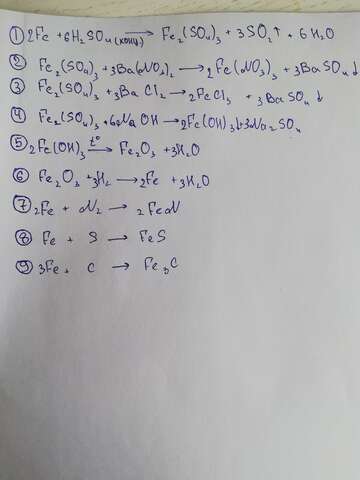 ① 2Fe + 6H₂SO₄(конц) → Fe₂(SO₄)₃ + 3SO₂↑ + 6H₂O
② Fe₂(SO₄)₃ + 3Ba(NO₃)₂ → 2Fe(NO₃)₃ + 3BaSO₄↓
③ Fe₂(SO₄)₃ + 3BaCl₂ → 2FeCl₃ + 3BaSO₄↓
④ Fe₂(SO₄)₃ + 6NaOH → 2Fe(OH)₃↓ + 3Na₂SO₄
⑤ 2Fe(OH)₃ t°→ Fe₂O₃ + 3H₂O
⑥ Fe₂O₃ + 3H₂ → 2Fe + 3H₂O
⑦ 2Fe + N₂ → 2FeN
⑧ Fe + S → FeS
⑨ 3Fe + C → Fe₃C